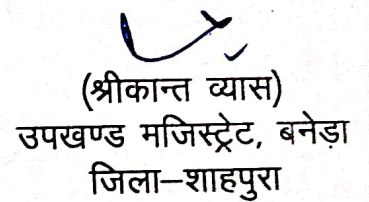 (श्रीकान्त व्यास)
उपखण्ड मजिस्ट्रेट, बनेड़ा
जिला–शाहपुरा